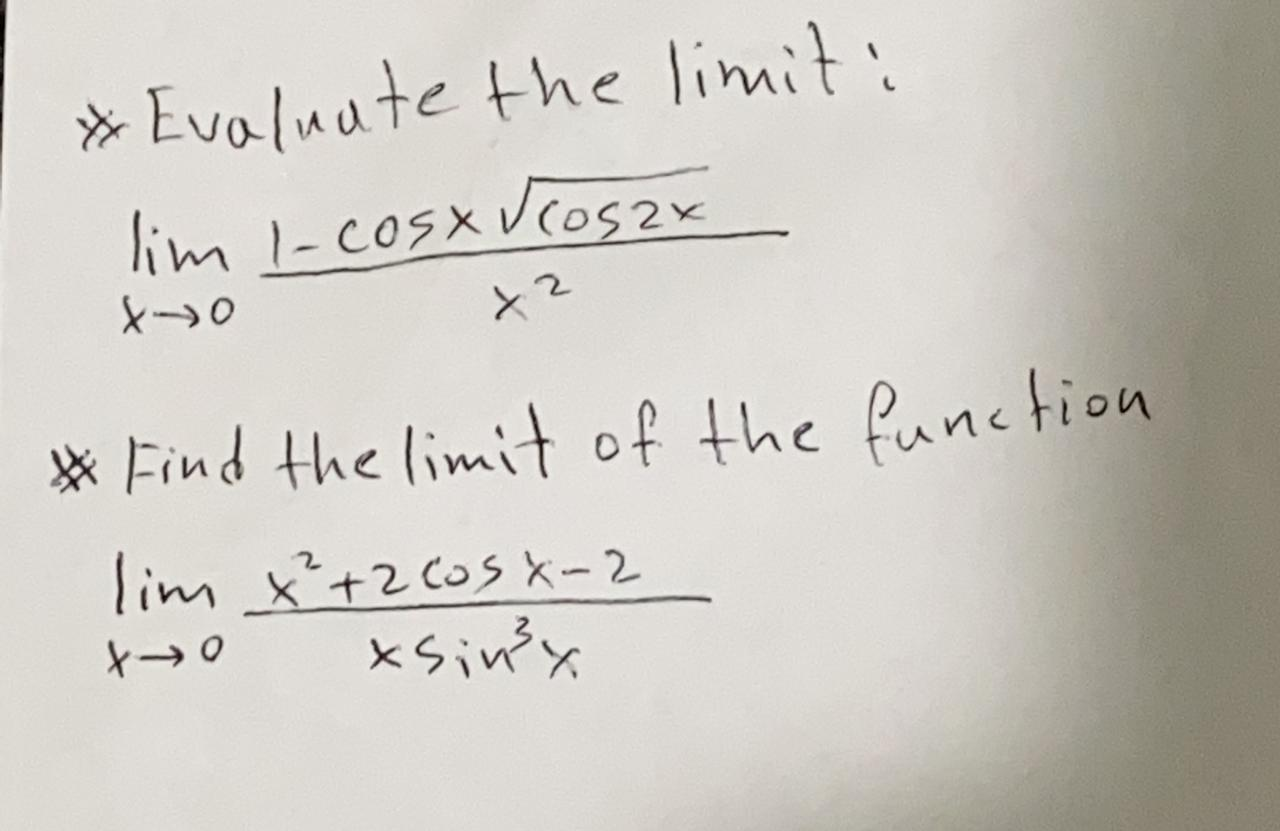 * Evaluate the limit:
lim 1-cosx√cos2x
x→0 x²
* Find the limit of the function
lim x²+2cosx-2
x→0 xsin³x